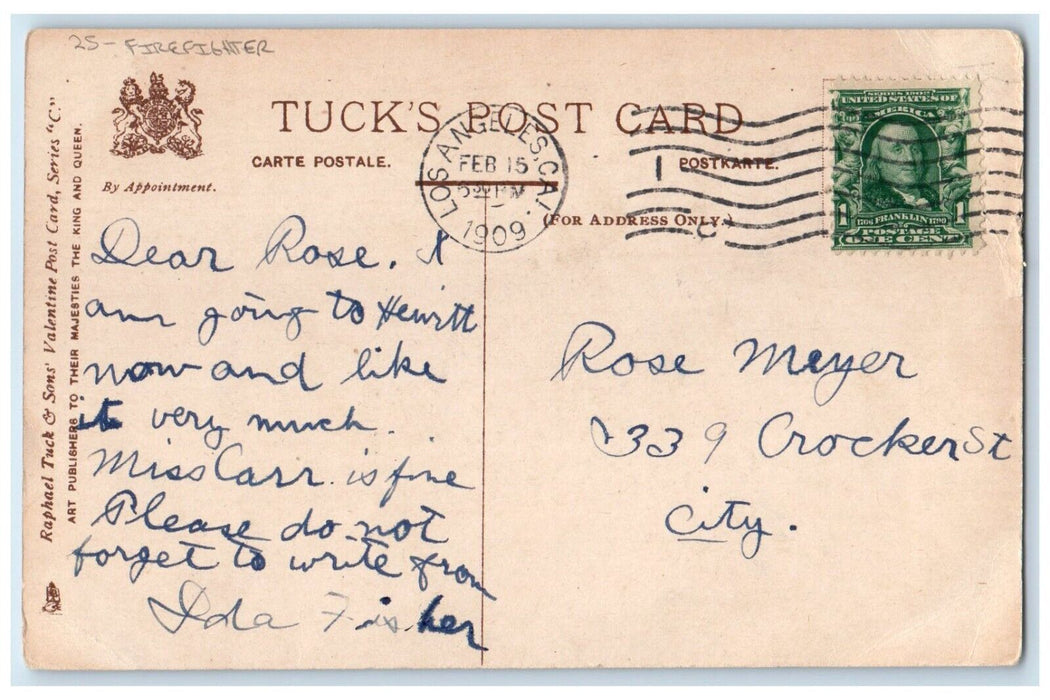 25- FIREFIGHTER
TUCK'S POST CARD
CARTE POSTALE.
POSTKARTE.
By Appointment.
(FOR ADDRESS ONLY.)
Raphael Tuck & Sons' Valentine Post Card, Series "C."
ART PUBLISHERS TO THEIR MAJESTIES THE KING AND QUEEN.
LOS ANGELES, CAL.
FEB 15
PM
1909
1
C
SERIES 1902
UNITED STATES OF
AMERICA
1706 FRANKLIN 1790
1 POSTAGE 1
ONE CENT
Dear Rose. I
am going to Hewitt
now and like
it very much.
Miss Carr is fine
Please do not
forget to write from
Ida Fisher
Rose Meyer
339 Crocker St
City.